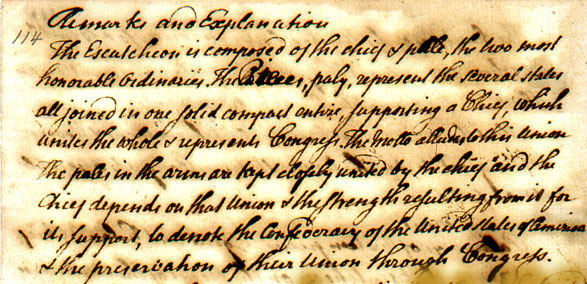 Remarks and Explanation
114
The Escutcheon is composed of the chief & pale, the two most
honorable Ordinaries. The Pieces, paly, represent the several states
all joined in one solid compact entire, supporting a Chief, which
unites the whole & represents Congress. The Motto alludes to this Union
The pales in the arms are kept closely united by the chief and the
Chief depends on that Union & the strength resulting from it for
its support, to denote the Confederacy of the United States of America
& the preservation of their Union through Congress.